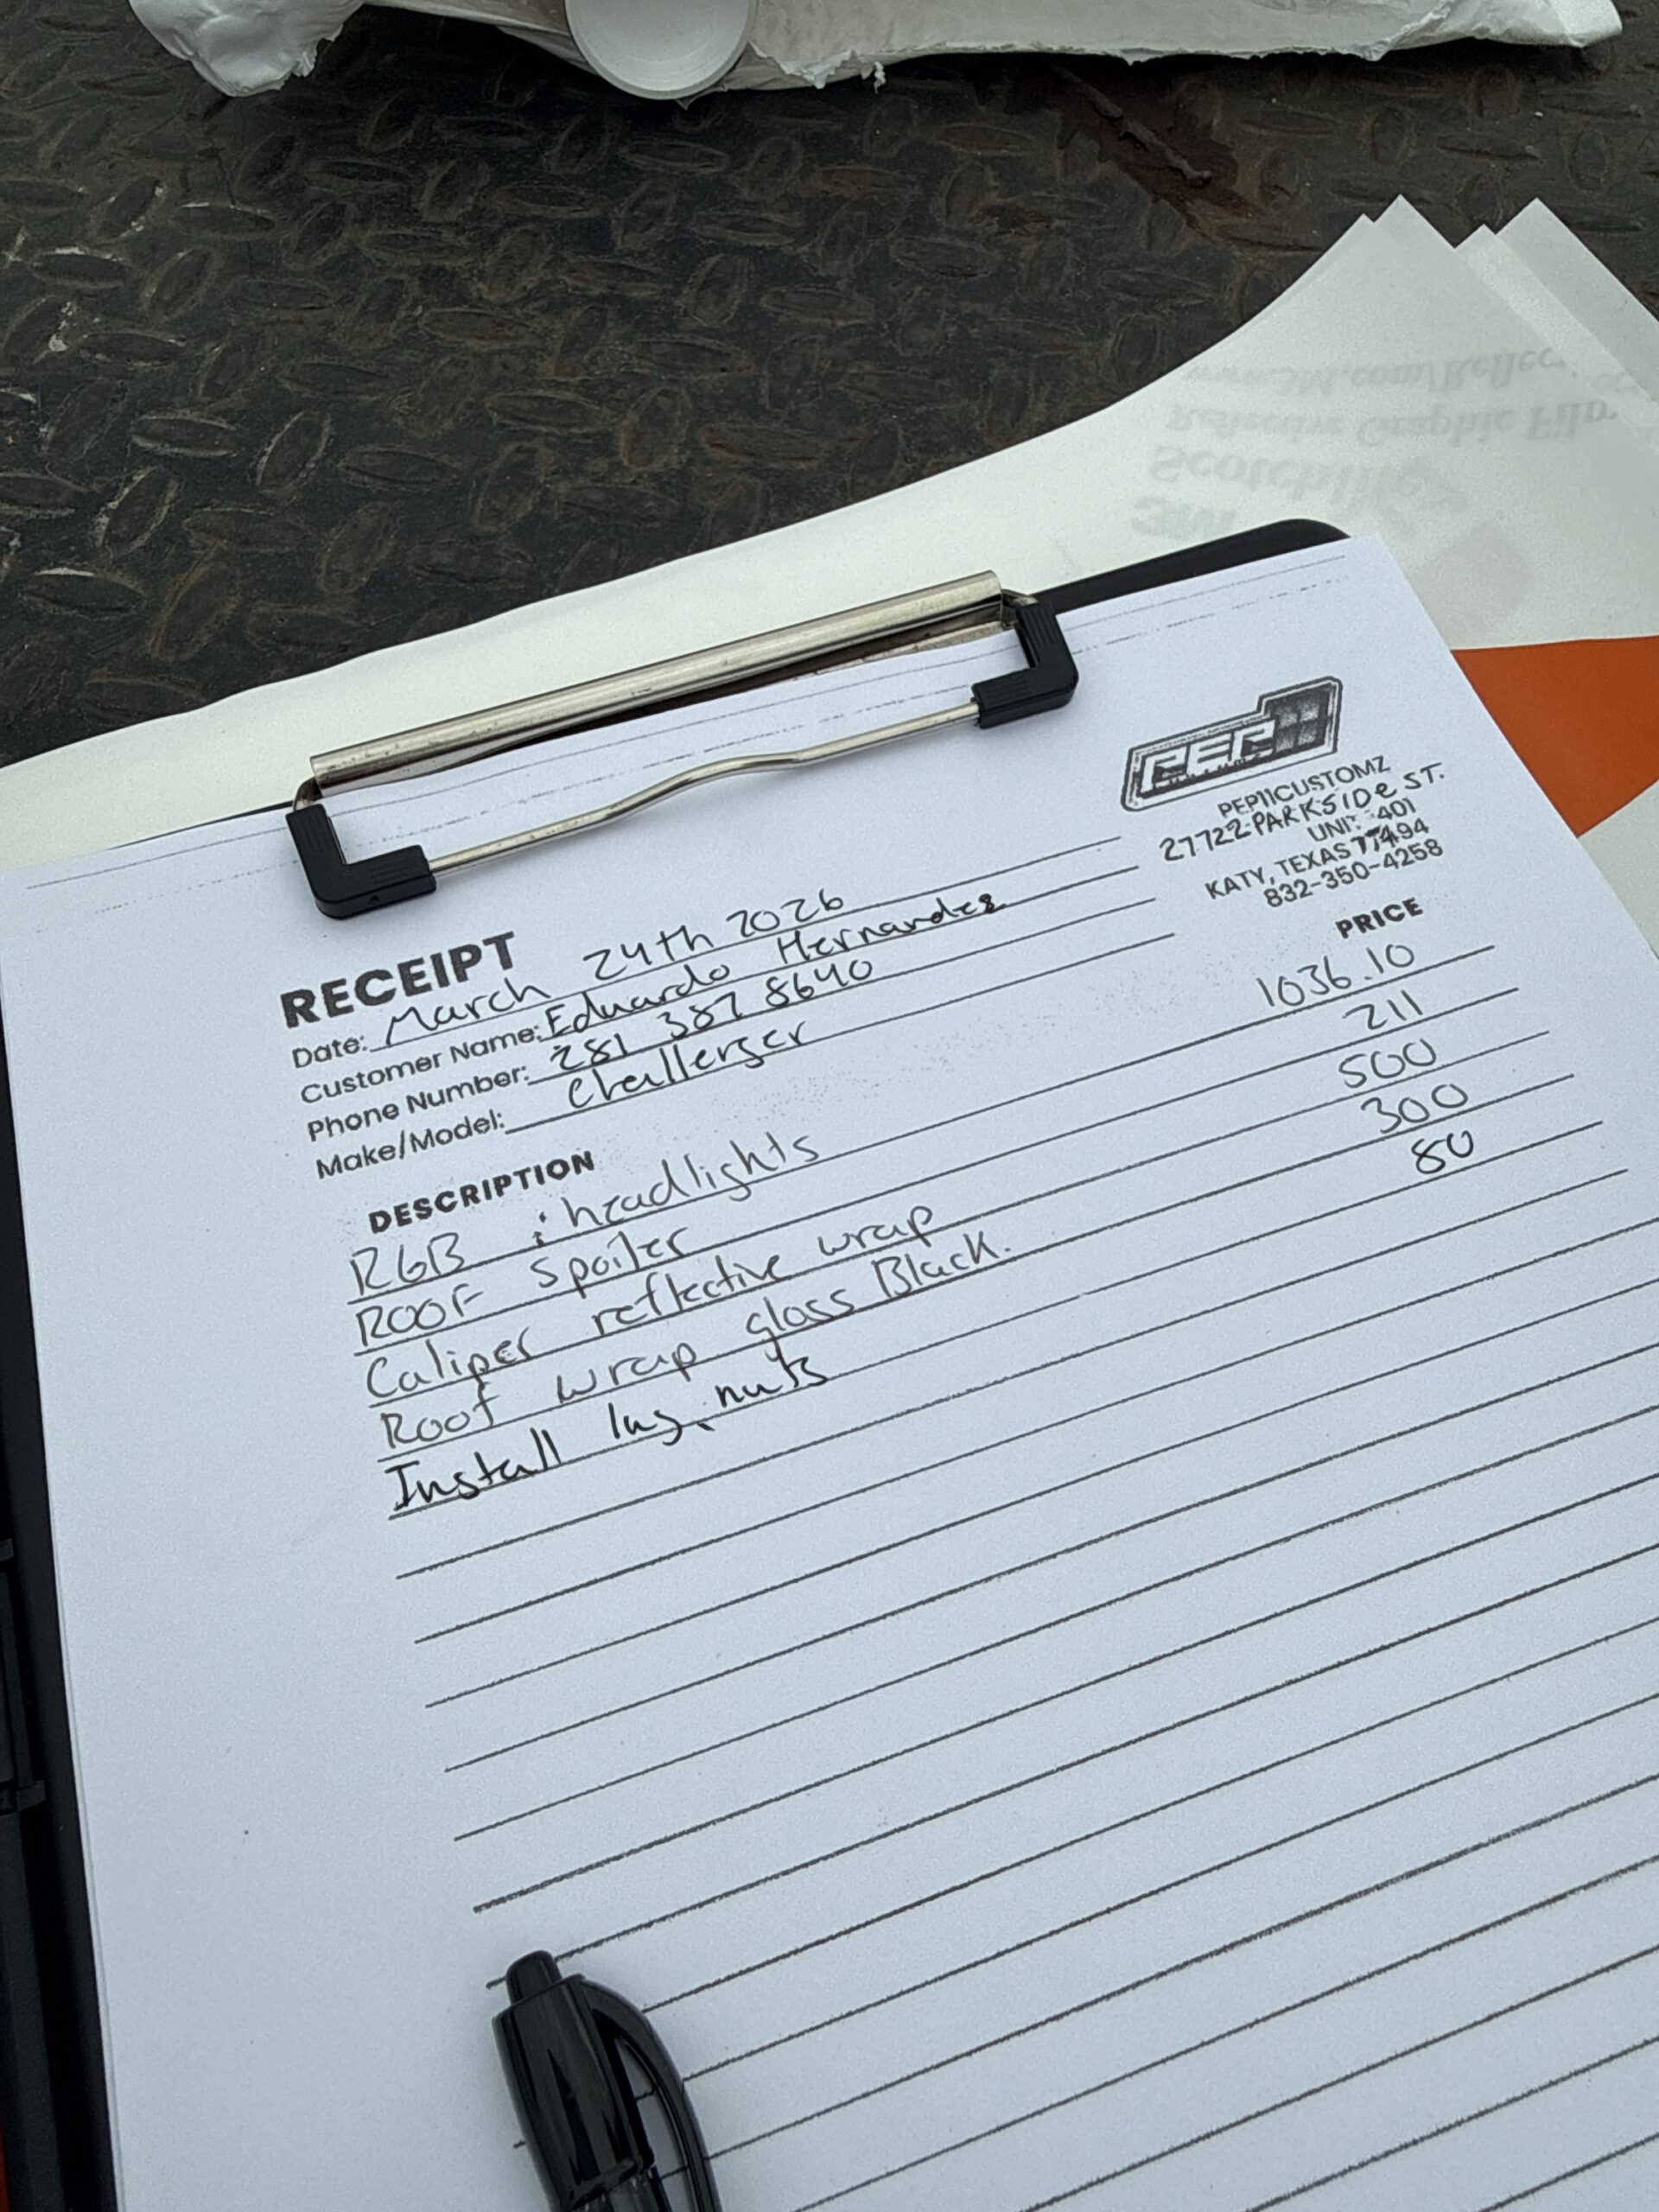 www.3M.com/Reflec
Reflective Graphic Film
Scotchlite
3M
PEP11
PEP11CUSTOMZ
27722 PARKSIDE ST.
UNIT 401
KATY, TEXAS 77494
832-350-4258
RECEIPT
Date: March 24th 2026
Customer Name: Eduardo Hernandez
Phone Number: 281 387 8640
Make/Model: Challenger
DESCRIPTION PRICE
RGB headlights 1036.10
ROOF spoiler 211
Caliper reflective wrap 500
Roof wrap gloss Black. 300
Install lug nuts 80